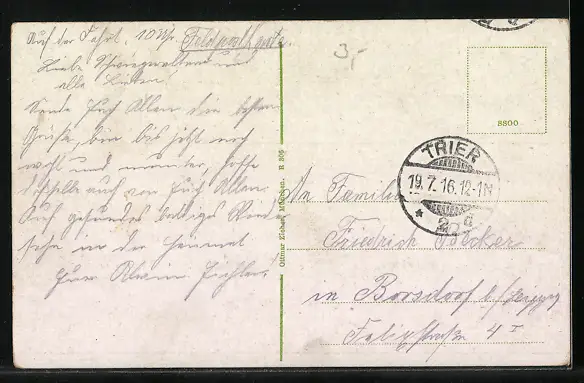 Auf der Fahrt, 10 Uhr. Feldpostkarte
Liebe Schwiegereltern und
alle Lieben!
Sende Euch Allen die besten
Grüße, bin bis jetzt noch
wohl und munter, hoffe
dasselbe auch von Euch Allen.
Auf gesundes baldiges Wieder
sehn in der Heimat
Euer
3,-
8800
TRIER
19.7.16.12-1N
* 2 d
Ottmar Zieher, München. R 809
An Familie
Friedrich Becker
in Borsdorf b/Leipzig
4 I